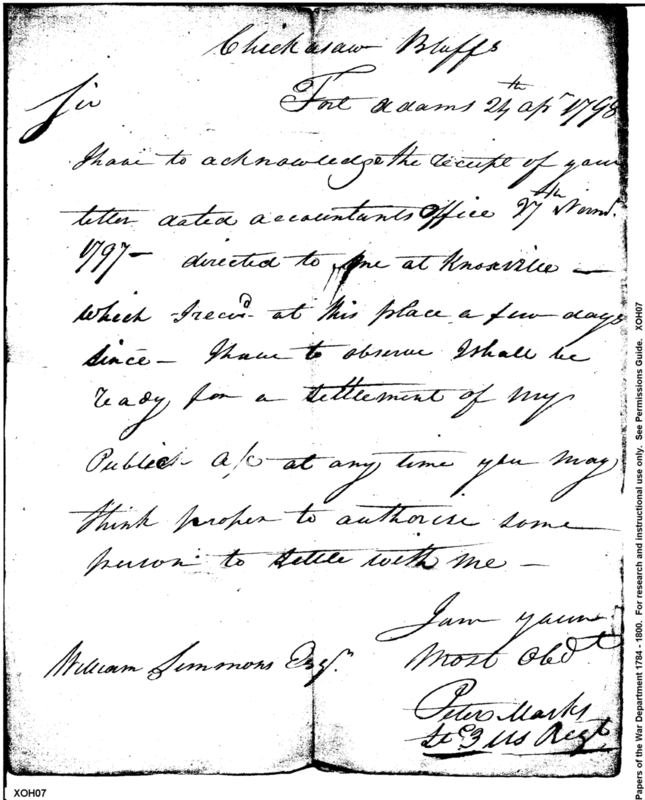 Chickasaw Bluffs
Sir Fort Adams 24th apr 1798
I have to acknowledge the receipt of your
letter dated accountants Office 27th Novmr.
1797 — directed to me at Knoxville —
which I recvd at this place a few days
since — I have to observe I shall be
ready for a settlement of my
Public a/c at any time you may
think proper to authorise some
person to settle with me —
I am your
William Simmons Esqr. Most Obdt
Peter Marks
3 US Regt
Papers of the War Department 1784 - 1800. For research and instructional use only. See Permissions Guide. XOH07
XOH07